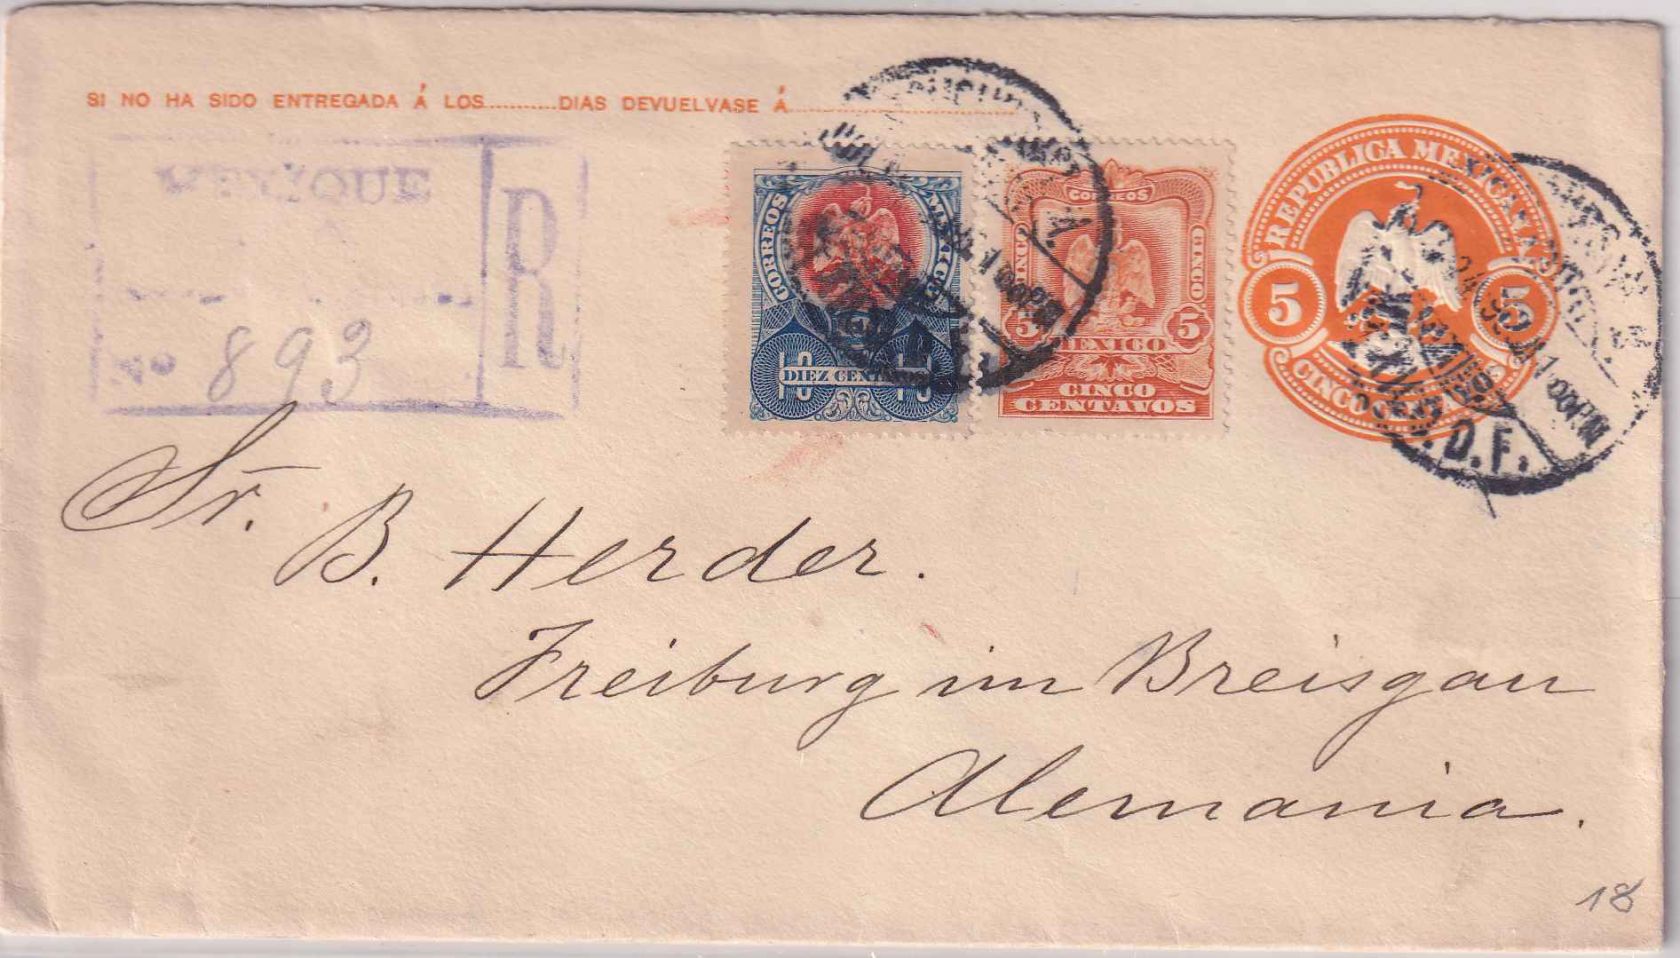 SI NO HA SIDO ENTREGADA Á LOS..........DIAS DEVUELVASE Á..............................
MEXIQUE
R
No 893
CORREOS
MEXICO
10 10
DIEZ CENTAVOS
CORREOS
CINCO CINCO
5 5
MEXICO
CINCO
CENTAVOS
REPUBLICA MEXICANA
5 5
CINCO CENTAVOS
1 00 PM
D.F.
Sr. B. Herder.
Freiburg im Breisgau
Alemania.
18